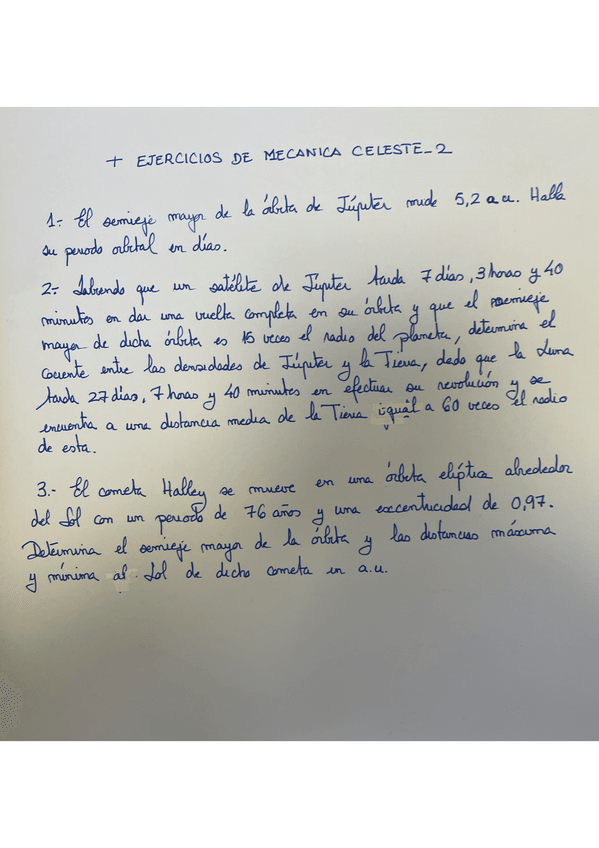 + EJERCICIOS DE MECANICA CELESTE_2
1.- El semieje mayor de la órbita de Júpiter mide 5,2 a.u. Halla
su periodo orbital en días.
2.- Sabiendo que un satélite de Júpiter tarda 7 días, 3 horas y 40
minutos en dar una vuelta completa en su órbita y que el semieje
mayor de dicha órbita es 15 veces el radio del planeta, determina el
cociente entre las densidades de Júpiter y la Tierra, dado que la Luna
tarda 27 días, 7 horas y 40 minutos en efectuar su revolución y se
encuentra a una distancia media de la Tierra igual a 60 veces el radio
de esta.
3.- El cometa Halley se mueve en una órbita elíptica alrededor
del Sol con un periodo de 76 años y una excentricidad de 0,97.
Determina el semieje mayor de la órbita y las distancias máxima
y mínima al Sol de dicho cometa en a.u.